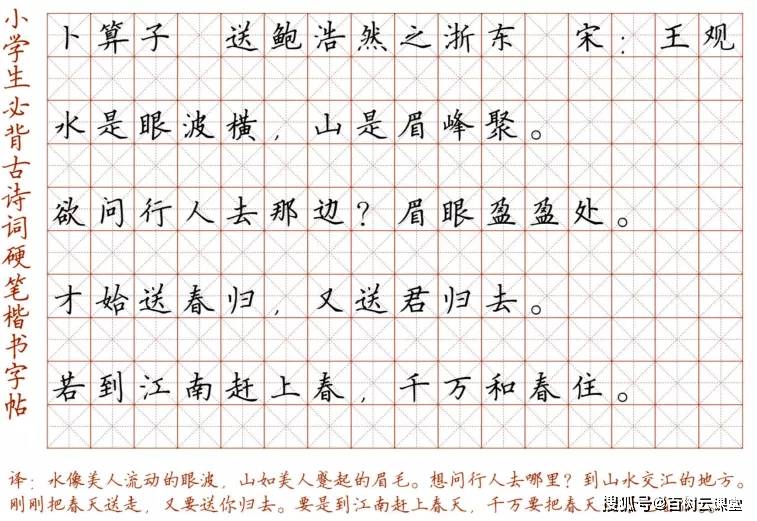 小学生必背古诗词硬笔楷书字帖
卜算子 送鲍浩然之浙东 宋：王观
水是眼波横，山是眉峰聚。
欲问行人去那边？眉眼盈盈处。
才始送春归，又送君归去。
若到江南赶上春，千万和春住。
译：水像美人流动的眼波，山如美人蹙起的眉毛。想问行人去哪里？到山水交汇的地方。
刚刚把春天送走，又要送你归去。要是到江南赶上春天，千万要把春天
搜狐号@百树云课堂